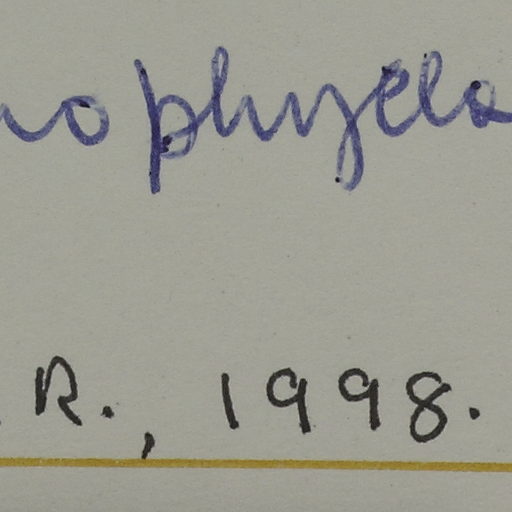 nophyela
R., 1998.